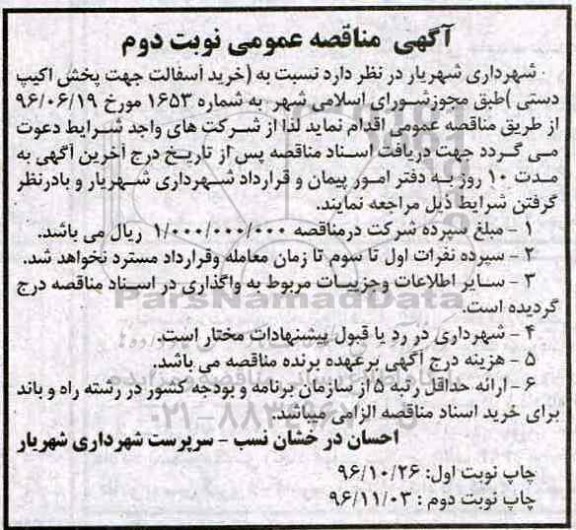 آگهی مناقصه عمومی نوبت دوم
شهرداری شهریار در نظر دارد نسبت به (خرید آسفالت جهت پخش اکیپ
دستی )طبق مجوزشورای اسلامی شهر به شماره ۱۶۵۳ مورخ ۹۶/۰۶/۱۹
از طریق مناقصه عمومی اقدام نماید لذا از شرکت های واجد شرایط دعوت
می گردد جهت دریافت اسناد مناقصه پس از تاریخ درج آخرین آگهی به
مدت ۱۰ روز به دفتر امور پیمان و قرارداد شهرداری شهریار و بادرنظر
گرفتن شرایط ذیل مراجعه نمایند.
۱ - مبلغ سپرده شرکت درمناقصه ۱/۰۰۰/۰۰۰/۰۰۰ ریال می باشد.
۲ - سپرده نفرات اول تا سوم تا زمان معامله وقرارداد مسترد نخواهد شد.
۳ - سایر اطلاعات وجزییات مربوط به واگذاری در اسناد مناقصه درج
گردیده است.
۴ - شهرداری در رد یا قبول پیشنهادات مختار است.
۵ - هزینه درج آگهی برعهده برنده مناقصه می باشد.
۶ - ارائه حداقل رتبه ۵ از سازمان برنامه و بودجه کشور در رشته راه و باند
برای خرید اسناد مناقصه الزامی میباشد.
احسان در خشان نسب - سرپرست شهرداری شهریار
چاپ نوبت اول: ۹۶/۱۰/۲۶
چاپ نوبت دوم : ۹۶/۱۱/۰۳
ParsNamadData